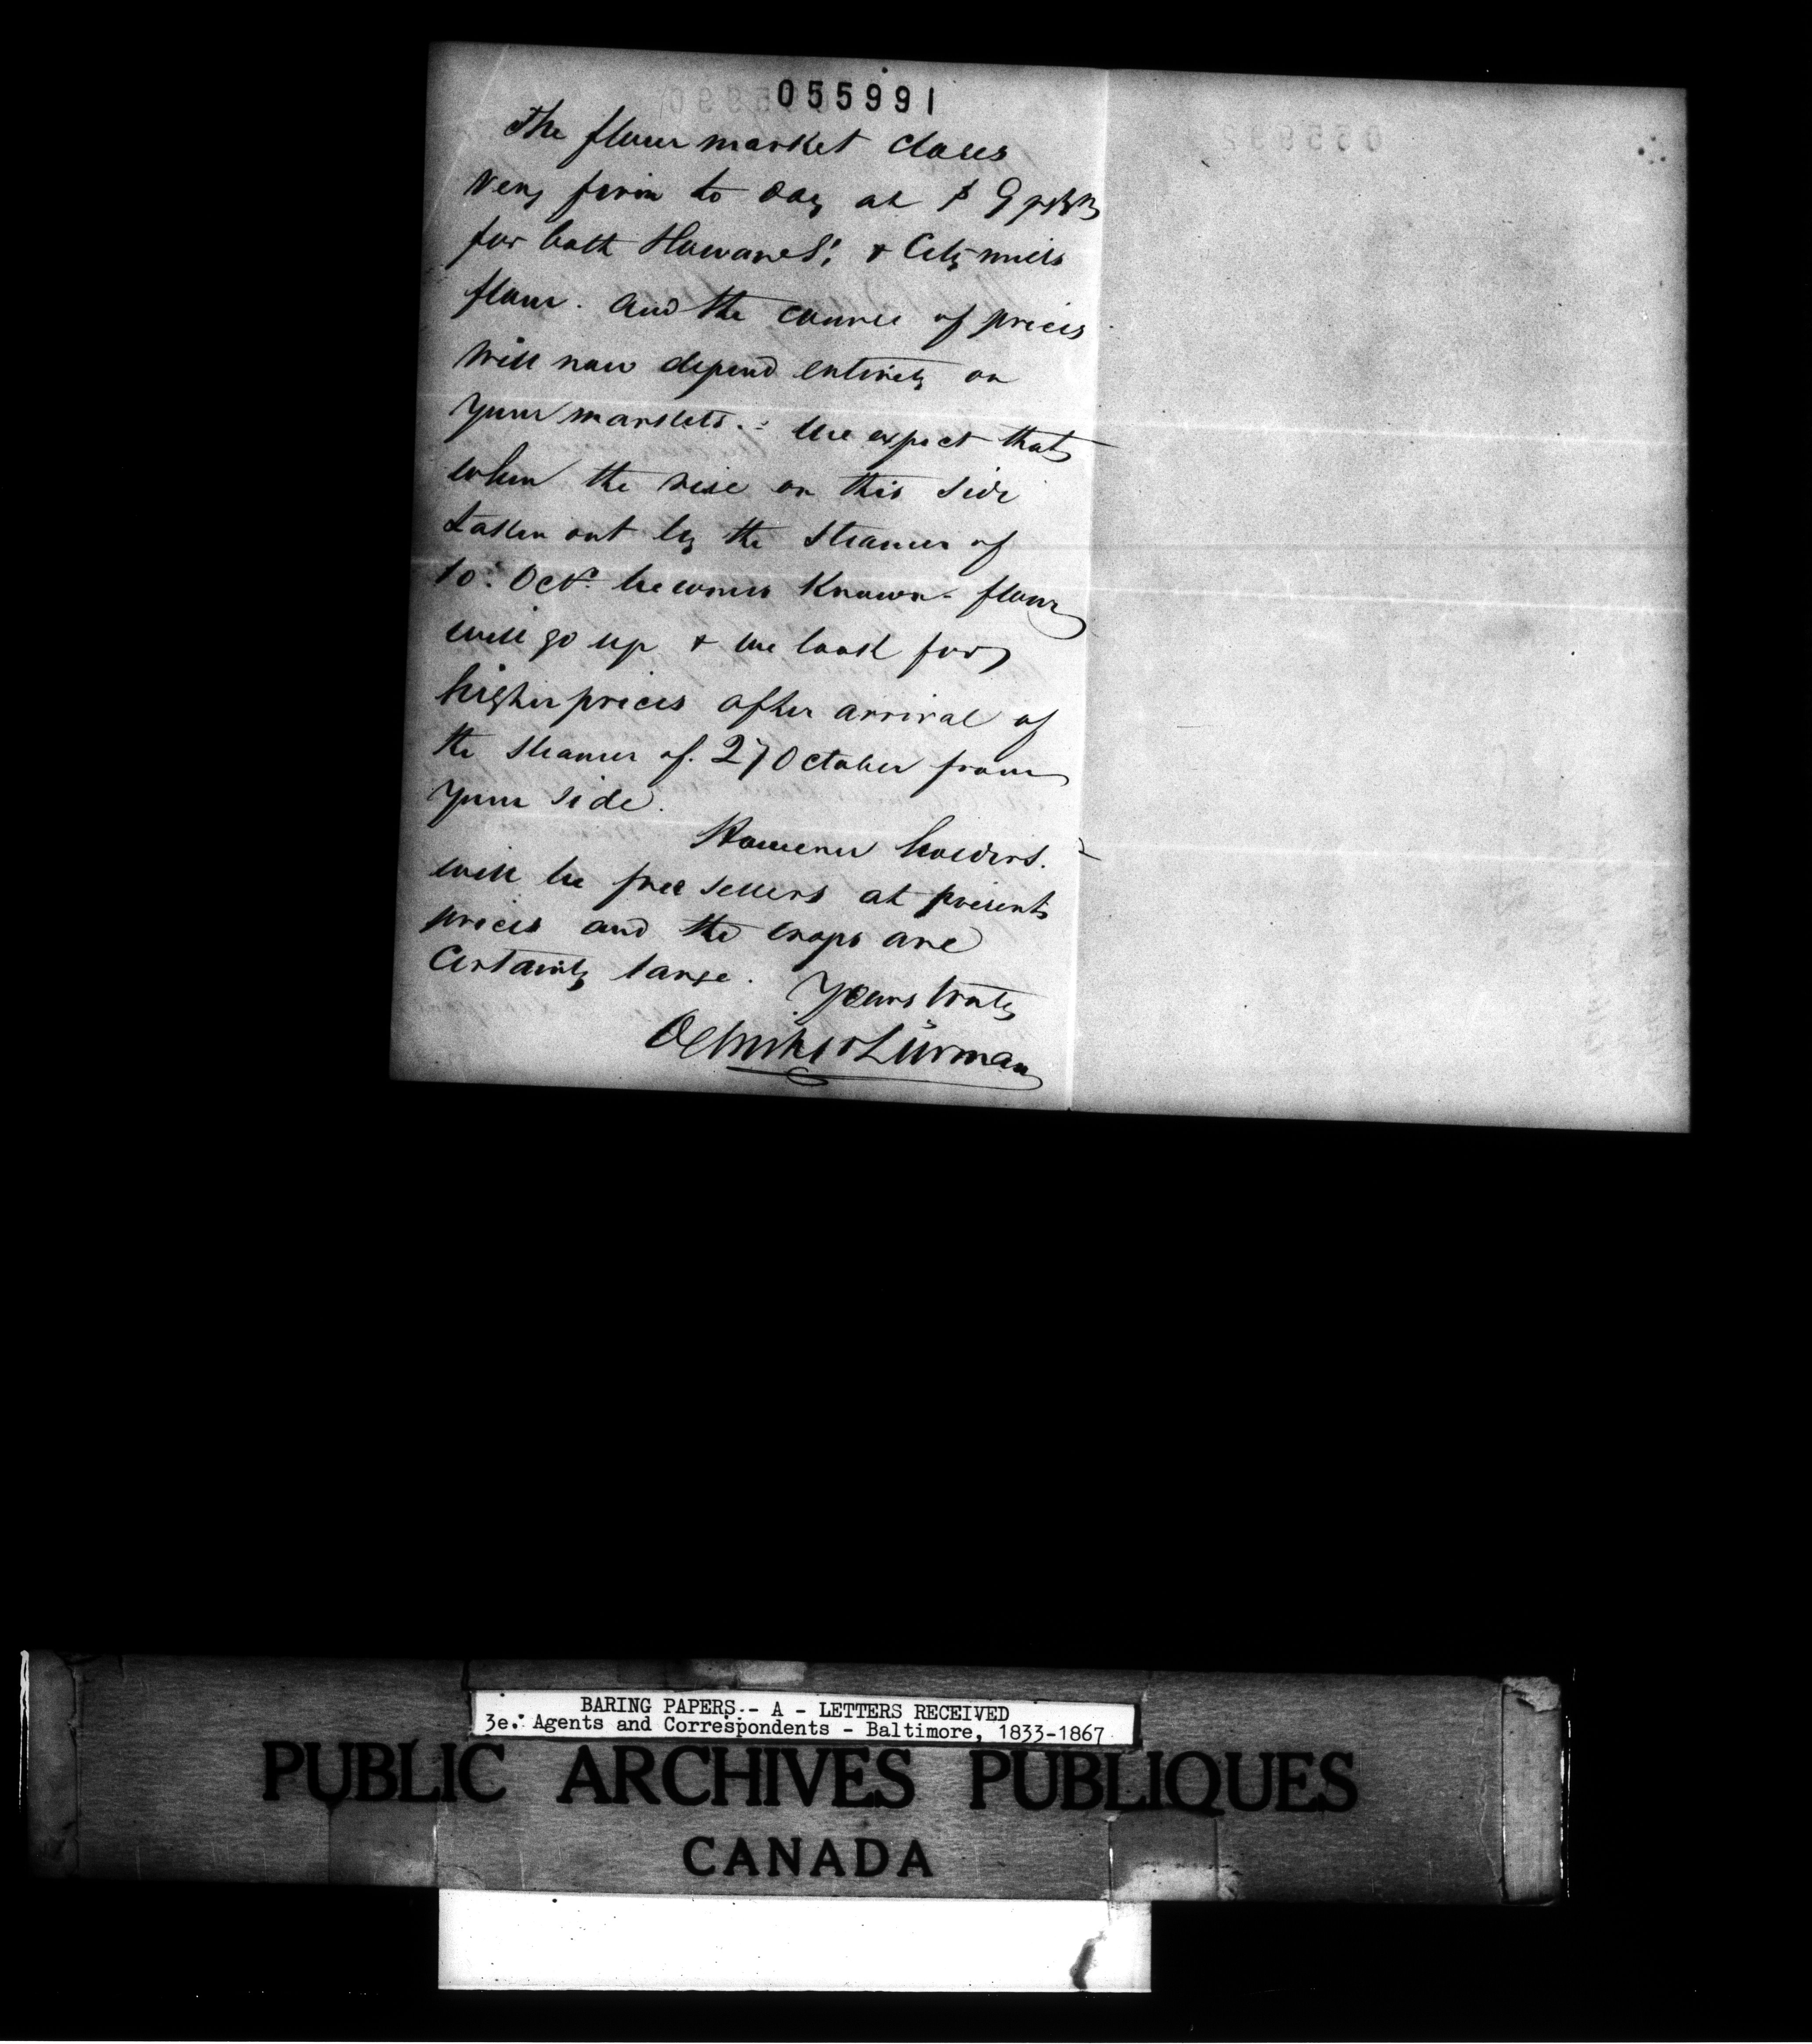 055991
The flour market closes
very firm to day at $ 9 p Bb
for both Howard St. & City mills
flour. and the course of prices
will now depend entirely on
your markets. We expect that
when the rise on this side
taken out by the steamer of
10. Octr. becomes known - flour
will go up & we look for
higher prices after arrival of
the steamer of 27 October from
your side.
However holders
will be free sellers at present
prices and the crops are
certainly large. Yours truly
Oelrichs & Lürman
BARING PAPERS - A - LETTERS RECEIVED
3e. Agents and Correspondents - Baltimore, 1833-1867
PUBLIC ARCHIVES PUBLIQUES
CANADA